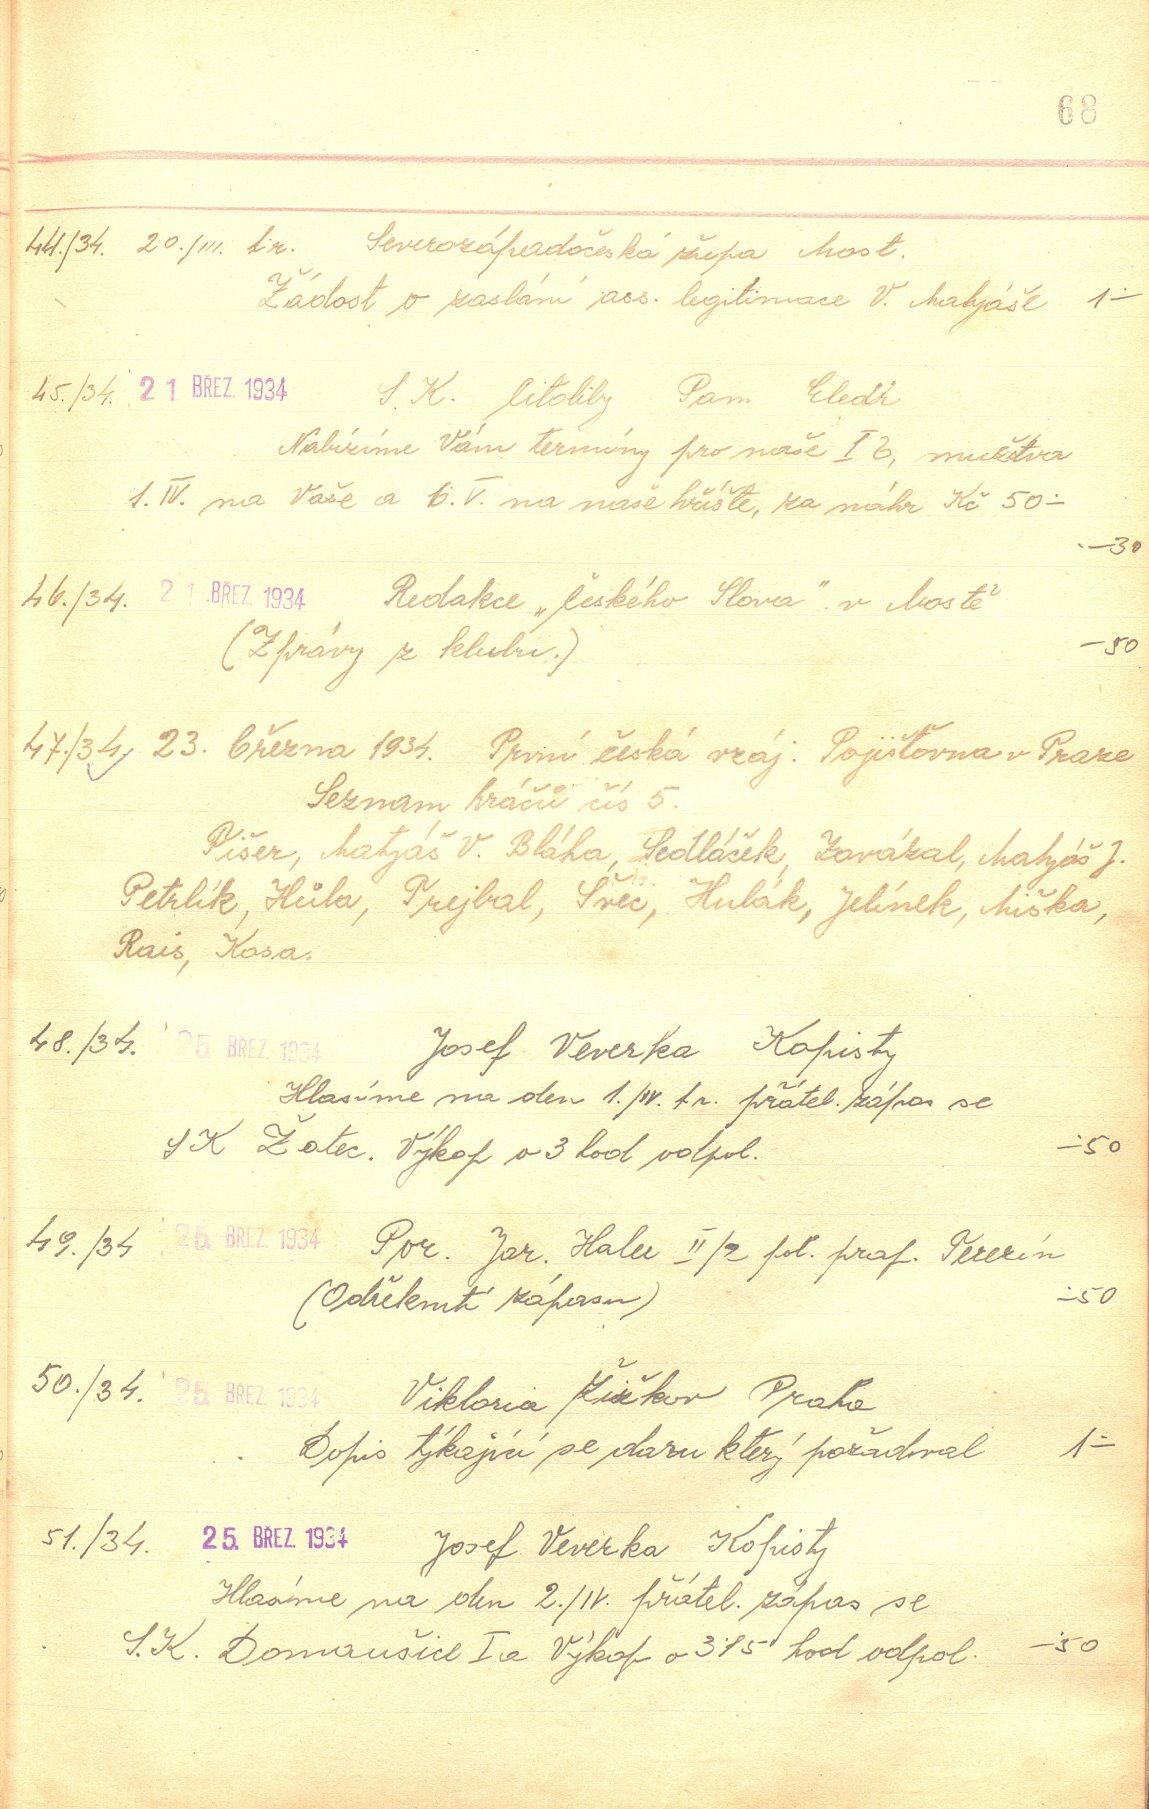 68
44./34. 20./III. t.r. Severozápadočeská župa Most.
Žádost o zaslání ass. legitimace V. Matyáše 1.–
45./34. 21 BŘEZ. 1934 S.K. Citoliby Pam
Nabízíme Vám termíny pro naše I b, mužstva
1. IV. na Vaše a 6. V. na naše hřiště, za náhr Kč 50.–
–30
46./34. 21 BŘEZ. 1934 Redakce „Českého Slova" v Mostě
(Zprávy z klubu.) –50
47./34. 23. března 1934. První česká vzáj. Pojišťovna v Praze
Seznam hráčů čís 5.
Pišer, Matyáš V. Bláha, Sedláček, Zavázal, Matyáš J.
Petrlík, Hůla, Trejbal, Švec, Hulák, Jelínek, Miška,
Rais, Kosa.
48./34. 25. BŘEZ. 1934 Josef Veverka Kopisty
Hlasíme na den 1./IV. t.r. přátel. zápas se
SK Žatec. Výkop o 3 hod odpol. –.50
49./34 25. BŘEZ. 1934 Por. Jar. II/2 prap. Terezín
(Odřeknutí zápasu) –.50
50./34. 25. BŘEZ. 1934 Viktoria Žižkov Praha
Dopis týkající se daru který požadoval 1.–
51./34. 25. BŘEZ. 1934 Josef Veverka Kopisty
Hlasíme na den 2./IV. přátel. zápas se
S.K. Domaušice I a Výkop o 3.15 hod odpol. –.50